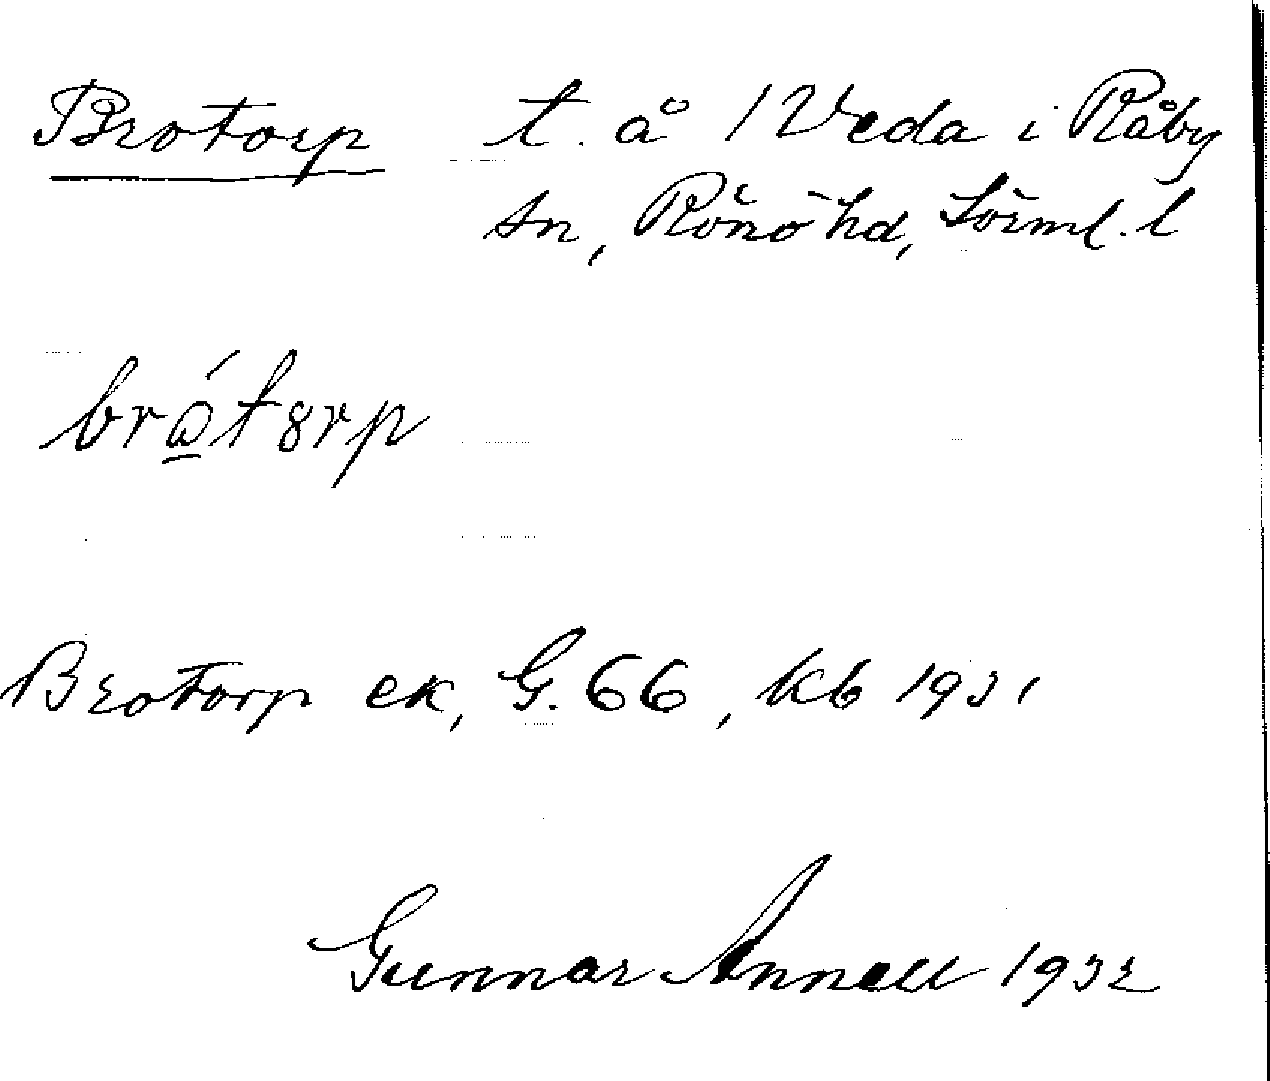 Brotorp t. å 1 Veda i Råby
sn, Rönö hd, Sörml. l
Brotorp ek, G. 66, kb 1931
Gunnar Annell 1932